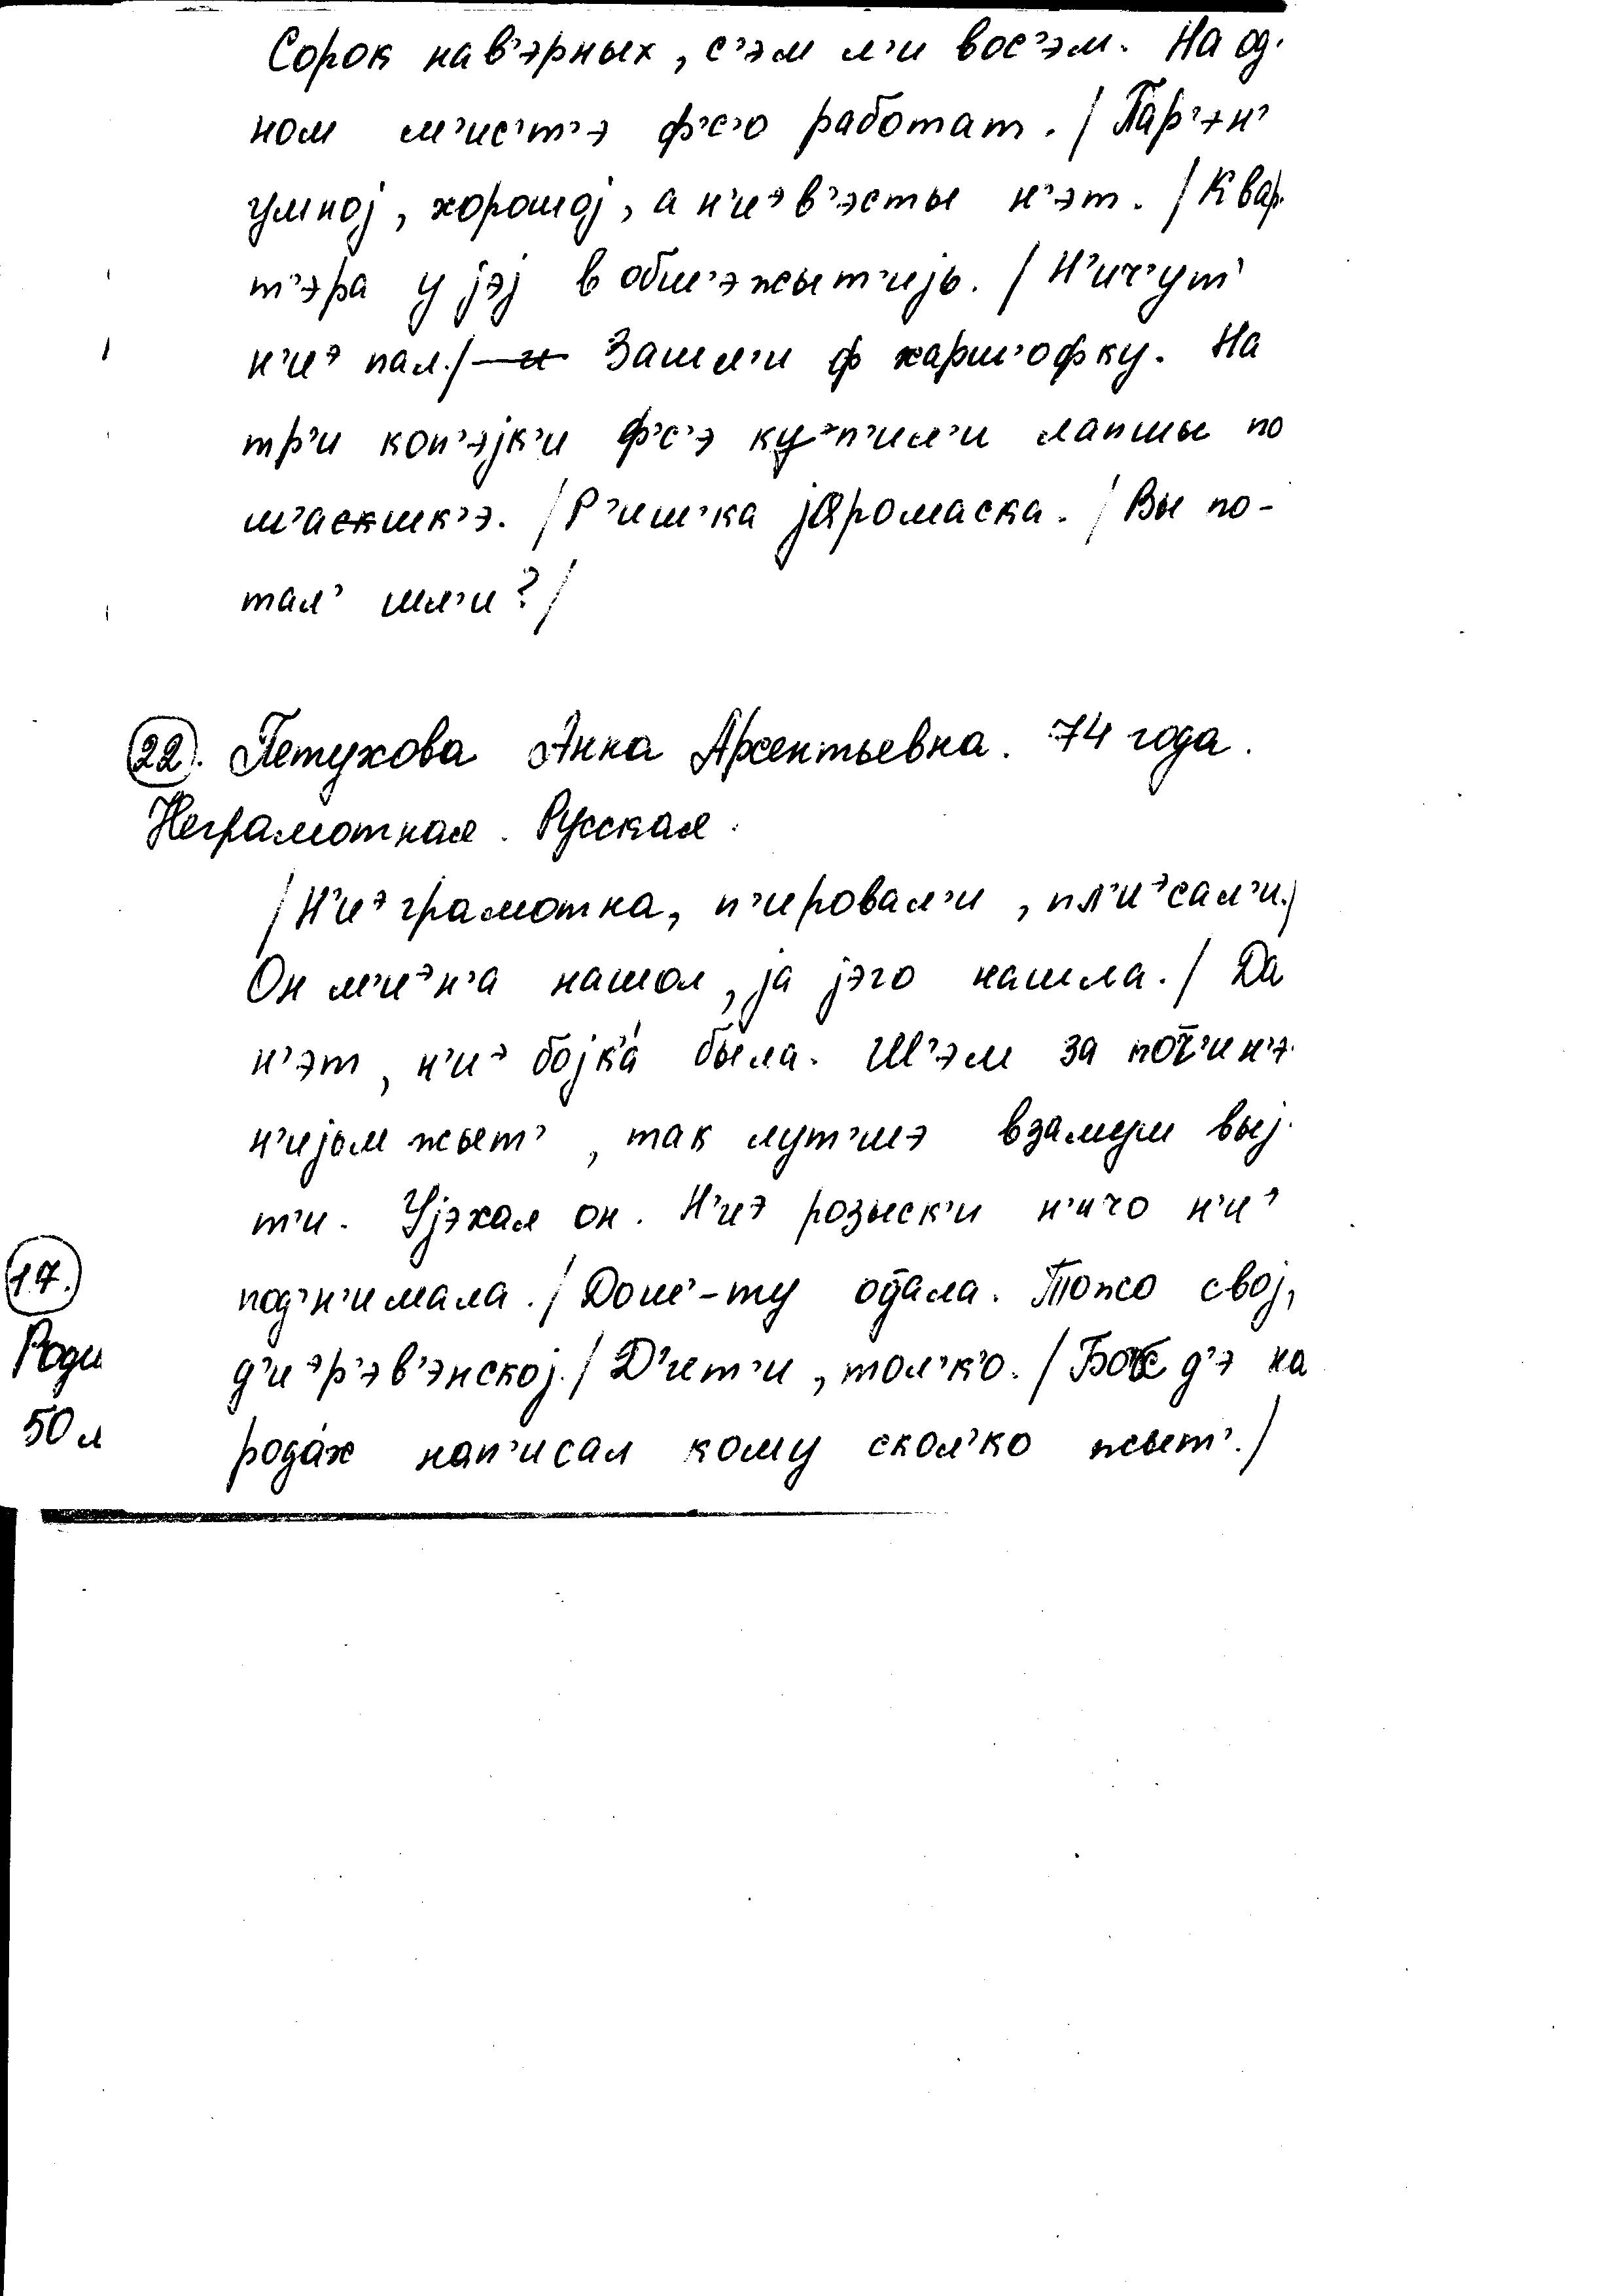 Сорок нав’эрных, с’эм л’и вос’эм. На од-
ном м’ис’т’э ф’с’о работат. / Пар’эн’
умној, хорошој, а н’иэв’эсты н’эт. / Квар-
т’эра у јэј в обш’эжыт’ијь. / Н’ич’ут’
н’иэ пал. / Зашл’и ф харш’офку. На
тр’и коп’эјк’и ф’с’э куп’ил’и лапшы по
ш’ашк’э. / Р’иш’ка јаромаска. / Вы по-
тал’ шл’и? /
22. Петухова Анна Арсентьевна. 74 года.
Неграмотная. Русская.
/ Н’иэграмотна, п’ировал’и, пл’иэсал’и. /
Он м’иэн’а нашол, ја јэго нашла. / Да
н’эт, н’иэ бојка́ была. Ш’эм за поч̄’ин’э-
н’ијьм жыт’, так лут’шэ взамуш выј-
т’и. Ујэхал он. Н’иэ розыск’и н’ичо н’иэ
под’н’имала. / Дош’-ту од̄ала. Тожо свој,
д’иэр’эв’энској. / Д’ит’и, тол’к’о. / Бох д’э на
рода́х нап’исал кому скол’ко жыт’. /
17.
Роди
50 л